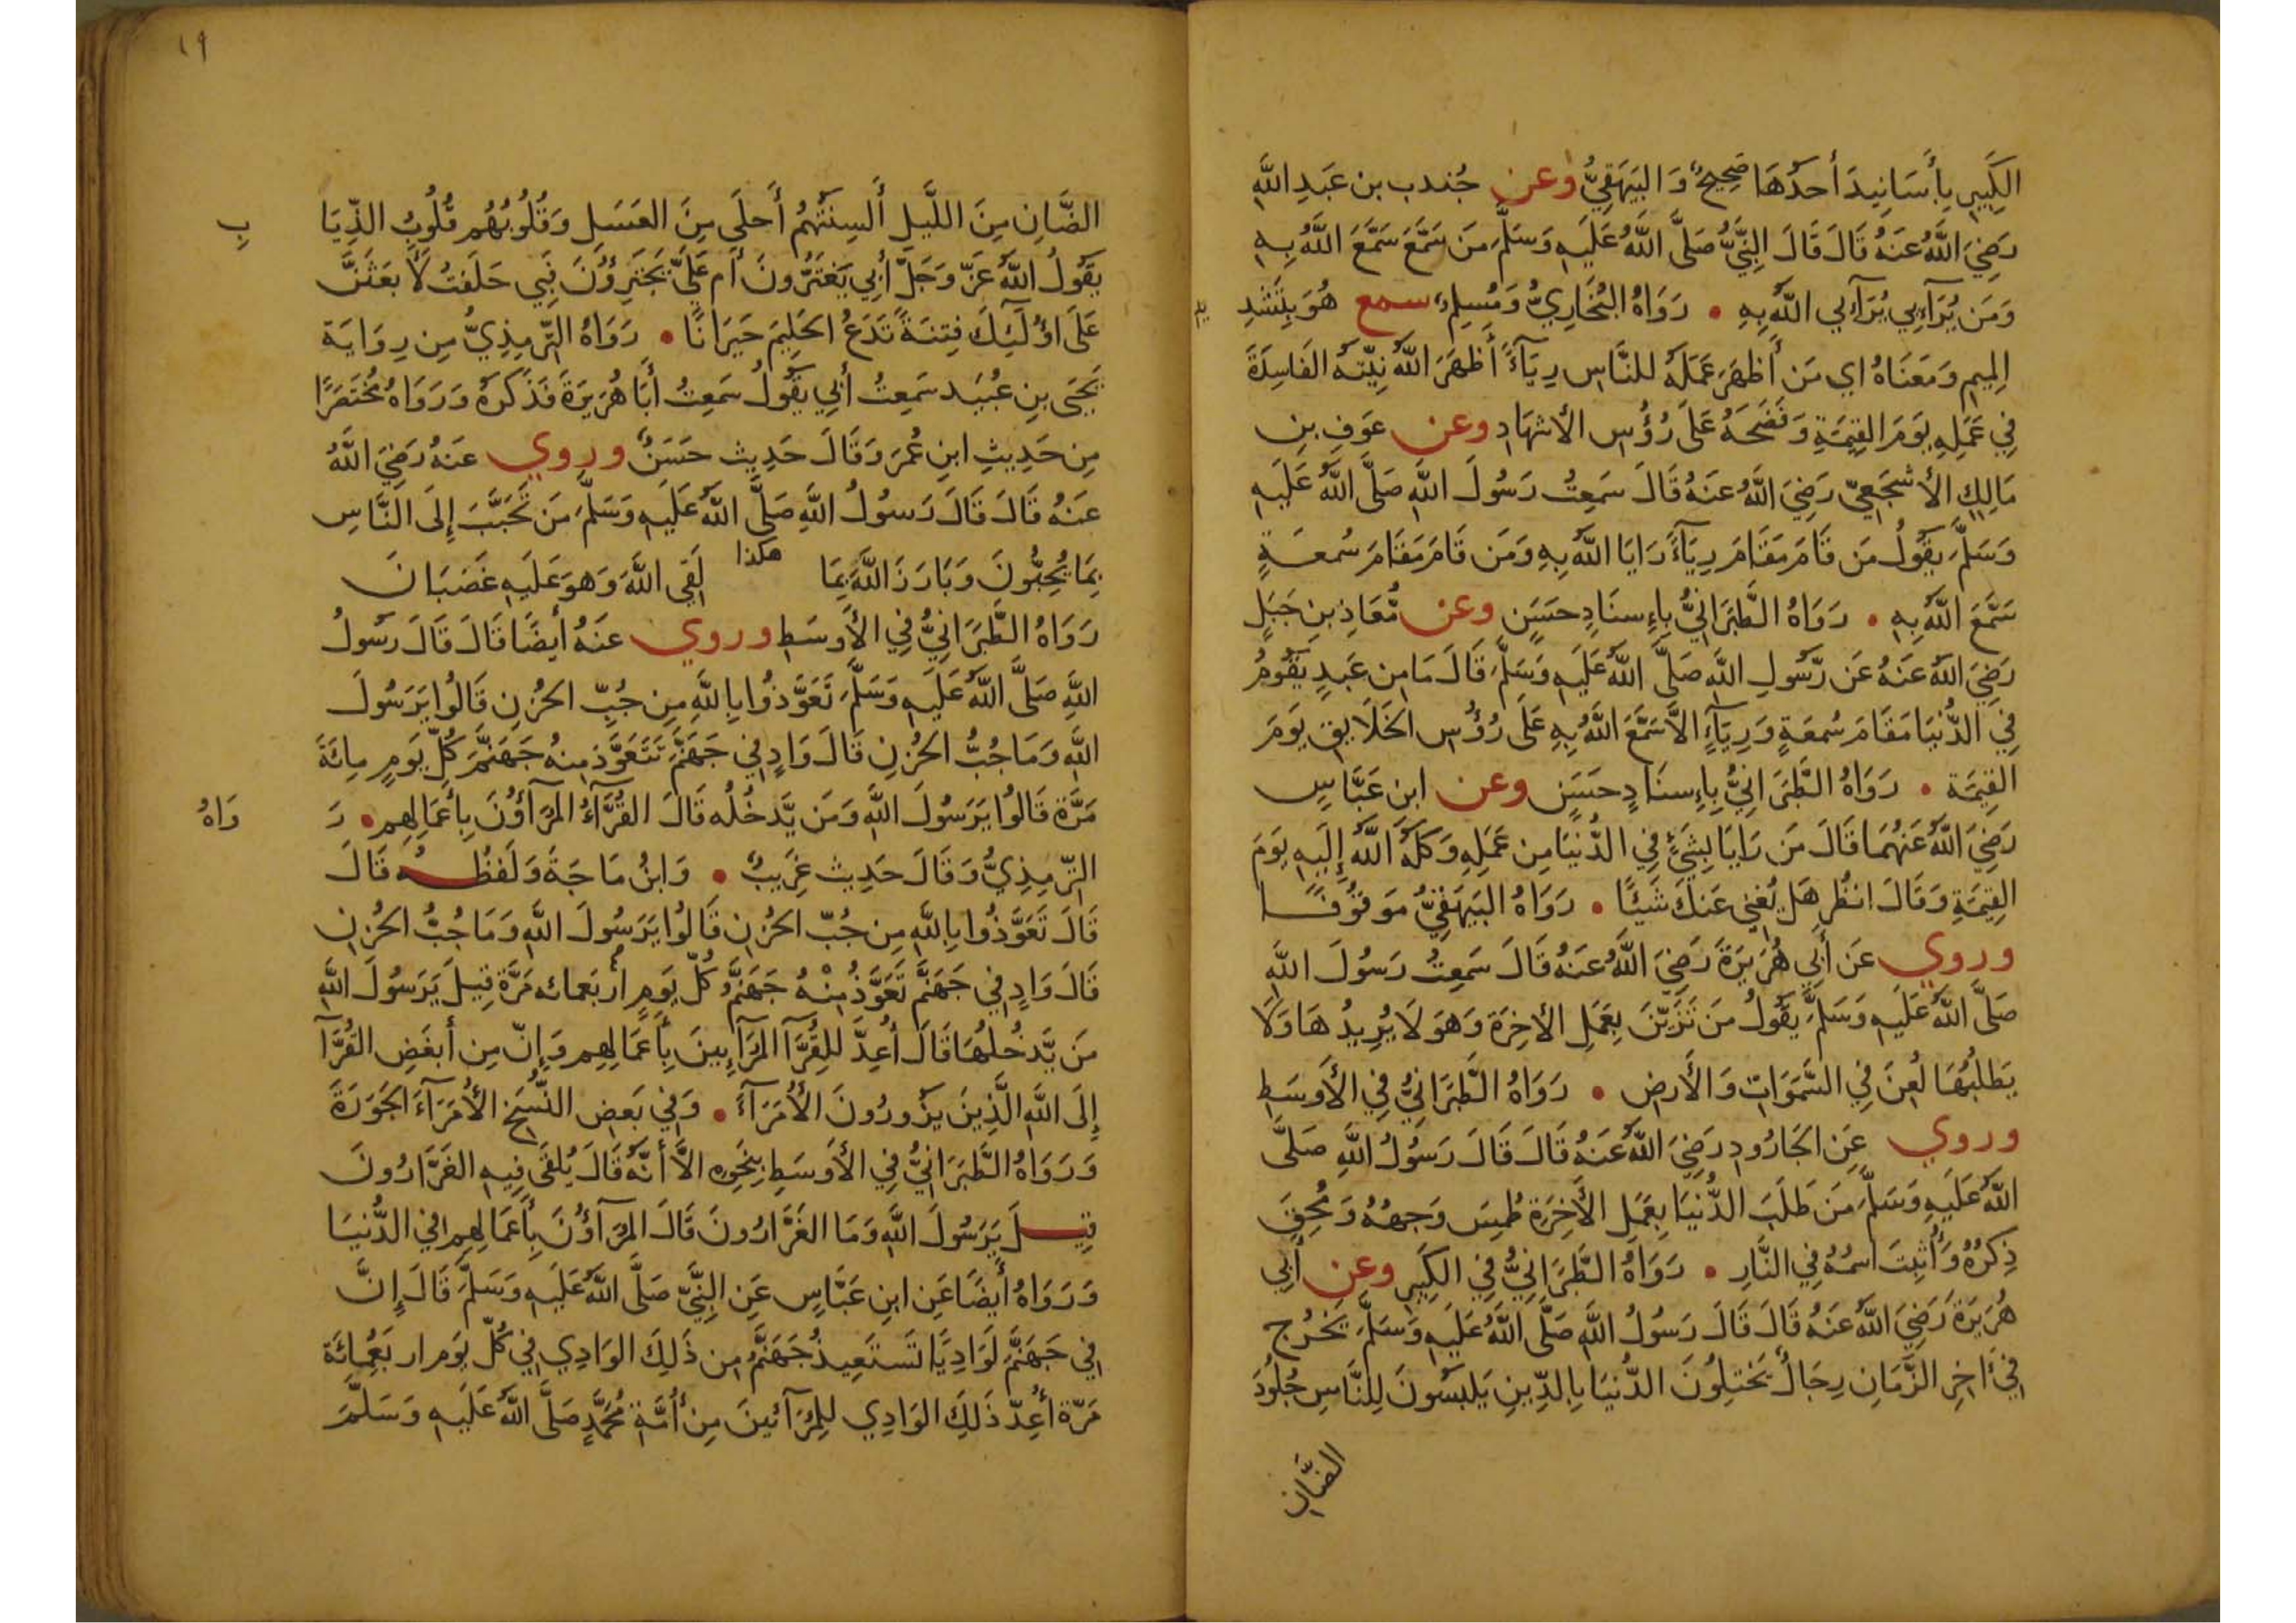 الكَبِيرِ بِأَسَانِيدَ أحدُهَا صَحِيحٌ وَالبَيهَقِيُّ وعن جُندب بن عَبدِ اللَّهِ
رَضِيَ اللَّهُ عَنهُ قَالَ قَالَ النَّبِيُّ صَلَّى اللَّهُ عَلَيهِ وَسَلَّمَ مَن سَمَّعَ سَمَّعَ اللَّهُ بِهِ
وَمَن يُرَآءِي يُرَآءِي اللَّهُ بِهِ • رَوَاهُ البُخَارِيُّ وَمُسلِمٌ سمع هُوَ بِتَشدِ يدِ
المِيمِ وَمَعنَاهُ اي مَن أَظهَرَ عَمَلَهُ للنَّاسِ رِيَآءً أَظهَرَ اللَّهُ نِيَّتَهُ الفَاسِدَةَ
فِي عَمَلِهِ يَومَ القِيمَةِ وَفَضَحَهُ عَلَى رُؤُسِ الأشهَادِ وعن عَوفِ بنِ
مَالِكِ الأَشجَعِيِّ رَضِيَ اللَّهُ عَنهُ قَالَ سَمِعتُ رَسُولَ اللَّهِ صَلَّى اللَّهُ عَلَيهِ
وَسَلَّمَ يَقُولُ مَن قَامَ مَقَامَ رِيَآءً رَايَا اللَّهُ بِهِ وَمَن قَامَ مَقَامَ سُمعَةٍ
سَمَّعَ اللَّهُ بِهِ • رَوَاهُ الطَّبَرَانِيُّ بِإِسنَادٍ حَسَنٍ وعن مُّعَاذِ بنِ جَبَلٍ
رَضِيَ اللَّهُ عَنهُ عَن رَّسُولِ اللَّهِ صَلَّى اللَّهُ عَلَيهِ وَسَلَّمَ قَالَ مَا مِن عَبدٍ يَقُومُ
فِي الدُّنيَا مَقَامَ سُمعَةٍ وَرِيَآءٍ الاَّ سَمَّعَ اللَّهُ بِهِ عَلَى رُؤُسِ الخَلَايقِ يَومَ
القِيمَة • رَوَاهُ الطَّبَرَانِيُّ بِإِسنَادٍ حَسَنٍ وعن ابنِ عَبَّاسٍ
رَضِيَ اللَّهُ عَنهُمَا قَالَ مَن رَايَا بِشَيءٍ فِي الدُّنيَا مِن عَمَلِهِ وَكَلَهُ اللَّهُ إِلَيهِ يَومَ
القِيمَةِ وَقَالَ انظُر هَل يُغنِي عَنكَ شَيئًا • رَوَاهُ البَيهَقِيُّ مَوقُوفًا
وروي عَن أَبِي هُرَيرَةَ رَضِيَ اللَّهُ عَنهُ قَالَ سَمِعتُ رَسُولَ اللَّهِ
صَلَّى اللَّهُ عَلَيهِ وَسَلَّمَ يَقُولُ مَن تَزَيَّنَ بِعَمَلِ الأخِرَةِ وَهوَ لَا يُرِيدُهَا وَلَا
يَطلُبُهَا لُعِنَ فِي السَّمَوَاتِ وَالأَرضِ • رَوَاهُ الطَّبَرَانِيُّ فِي الأَوسَطِ
وروي عَنِ الجَارُودِ رَضِيَ اللَّهُ عَنهُ قَالَ قَالَ رَسُولُ اللَّهِ صَلَّى
اللَّهُ عَلَيهِ وَسَلَّمَ مَن طَلَبَ الدُّنيَا بِعَمَلِ الأَخِرَةِ طُمِسَ وَجهُهُ وَمُحِقَ
ذِكرُهُ وَأُثبِتَ اسمُهُ فِي النَّارِ • رَوَاهُ الطَّبَرَانِيُّ فِي الكَبِيرِ وعن أَبِي
هُرَيرَةَ رَضِيَ اللَّهُ عَنهُ قَالَ قَالَ رَسُولُ اللَّهِ صَلَّى اللَّهُ عَلَيهِ وَسَلَّمَ يَخرُج
فِي اَخِرِ الزَّمَانِ رِجَالٌ يَختِلُونَ الدُّنيَا بِالدِّينِ يَلبَسُونَ لِلنَّاسِ جُلُودَ
الضَّانِ
١٩
الضَّانِ مِنَ اللَّيلِ أَلسِنَتُهُم أَحلَى مِنَ العَسَلِ وَقُلُوبُهُم قُلُوبُ الذِّيَا بِ
يَقُولُ اللَّهُ عَزَّ وَجَلَّ أَبِي يَغتَرُّونَ أَم عَلَيَّ يَجتَرِؤُنَ فَبِي حَلَفتُ لَأَبعَثَنَّ
عَلَى اؤلَئِكَ فِتنَةً تَدَعُ الحَلِيمَ حَيرَانًا • رَوَاهُ التِّرمِذِيُّ مِن رِوَايَة
يَحيَى بنِ عُبَيد سَمِعتُ أَبِي يَقُولُ سَمِعتُ أَبَا هُرَيرَةَ فَذَكَرَهُ وَرَوَاهُ مُختَصَرًا
مِن حَدِيثِ ابنِ عُمَرَ وَقَالَ حَدِيث حَسَنٌ وروي عَنهُ رَضِيَ اللَّهُ
عَنهُ قَالَ قَالَ رَسُولُ اللَّهِ صَلَّى اللَّهُ عَلَيهِ وَسَلَّمَ مَن تَحَبَّبَ إِلَى النَّاسِ
بِمَا يُحِبُّونَ وَبَارَزَ اللَّهَ بِمَا هكذا لَقِي اللَّهَ وَهوَ عَلَيهِ غَضبَانَ
رَوَاهُ الطَّبَرَانِيُّ فِي الأَوسَطِ وروي عَنهُ أَيضًا قَالَ قَالَ رَسُولُ
اللَّهِ صَلَّى اللَّهُ عَلَيهِ وَسَلَّمَ تَعَوَّذُوا بِاللَّهِ مِن جُبِّ الحُزنِ قَالُوا يَرَسُولَ
اللَّهِ وَمَا جُبُّ الحُزنِ قَالَ وَادٍ فِي جَهَنَّمَ تَتَعَوَّذ مِنهُ جَهَنَّمُ كُلَّ يَومٍ مِائَةَ
مَرَّة قَالُوا يَرَسُولَ اللَّهِ وَمَن يَّدخُلُه قَالَ القُرَّآءُ المُرَآؤُنَ بِأَعمَالِهِم • رَ وَاهُ
التِّرمِذِيُّ وَقَالَ حَدِيث غَرِيبٌ • وَابنُ مَاجَةَ وَلَفظُهُ قَالَ
قَالَ تَعَوَّذُوا بِاللَّهِ مِن جُبِّ الحُزنِ قَالُوا يَرَسُولَ اللَّهِ وَمَا جُبُّ الحُزنِ
قَالَ وَادٍ فِي جَهَنَّمَ تَعَوَّذُ مِنْهُ جَهَنَّمُ كُلَّ يَومٍ اربَعمائه مَرَّة قِيلَ يَرَسُولَ اللَّهِ
مَن يَّدخُلُهَا قَالَ أُعِدَّ لِلقُرَّآ المُرَآءِينَ بِأَعمَالِهِم وَإِنَّ مِن أَبغَضِ القُرَّآ
إِلَى اللَّهِ الَّذِينَ يَزُورُونَ الأُمَرَآءَ • وَفِي بَعضِ النُّسَخِ الأُمَرَآءَ الجَوَرَةَ
وَرَوَاهُ الطَّبَرَانِيُّ فِي الأَوسَطِ بِنَحوِه الاَّ أَنَّهُ قَالَ يُلقَى فِيهِ الغَرَّارُونَ
قِيلَ يَرَسُولَ اللَّهِ وَمَا الغَرَّارُونَ قَالَ المُرَآؤُنَ بِأَعمَالِهِم فِي الدُّنيَا
وَرَوَاهُ أَيضًا عَنِ ابنِ عَبَّاسٍ عَنِ النَّبِيِّ صَلَّى اللَّهُ عَلَيهِ وَسَلَّمَ قَالَ إِنَّ
فِي جَهَنَّمَ لَوَادِيًا تَستَعِيذُ جَهَنَّمُ مِن ذَلِكَ الوَادِي فِي كُلِّ يَوم اربَعُمِائَة
مَرّة أُعِدّ ذَلِكَ الوَادِي لِلمُرَآئينَ مِن أُمَّةِ مُحَمَّدٍ صَلَّى اللَّهُ عَلَيهِ وَسَلَّمَ